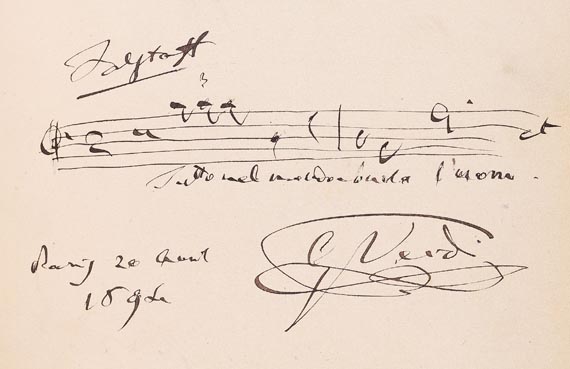 Falstaff
3
Tutto nel mondo è burla l'uomo
G Verdi
Paris 20 Avril
1894